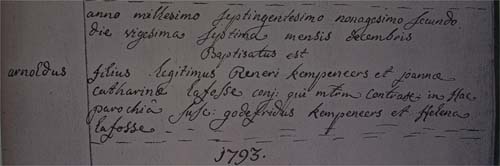 anno millesimo septingentesimo nonagesimo secundo
die vigesima septima mensis decembris
Baptisatus est
arnoldus filius legitimus Reneri kempeneers et joannæ
catharinæ lafosse conj: qui mtm contraxe: in hac
parochiâ susc: godefridus kempeneers et Helena
lafosse
1793.